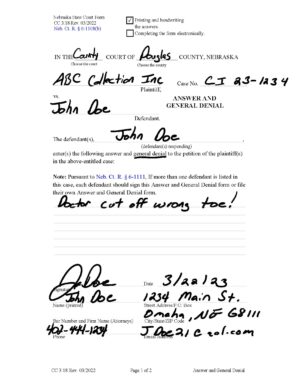 Nebraska State Court Form
CC 3:18 Rev. 03/2022
Neb. Ct. R. § 6-1108(b)
Printing and handwriting
the answers
Completing the form electronically.
IN THE County COURT OF Douglas COUNTY, NEBRASKA
ABC Collection Inc
Plaintiff,
Case No. CI 23-1234
vs.
ANSWER AND
GENERAL DENIAL
John Doe
Defendant.
The defendant(s), John Doe,
(defendant(s) responding)
enter(s) the following answer and general denial to the petition of the plaintiff(s)
in the above-entitled case:
Note: Pursuant to Neb. Ct. R. § 6-1111, If more than one defendant is listed in
this case, each defendant should sign this Answer and General Denial form or file
their own Answer and General Denial form.
Doctor cut off wrong toe!
J Doe
3/22/23
Signature
Date
John Doe
1234 Main St.
Name (printed)
Street Address/P.O. Box
Omaha, NE 68111
Bar Number and Firm Name (Attorneys)
City/State/ZIP Code
402-444-1234
Phone
CC 3:18 Rev. 03/2022
Page 1 of 2
Answer and General Denial